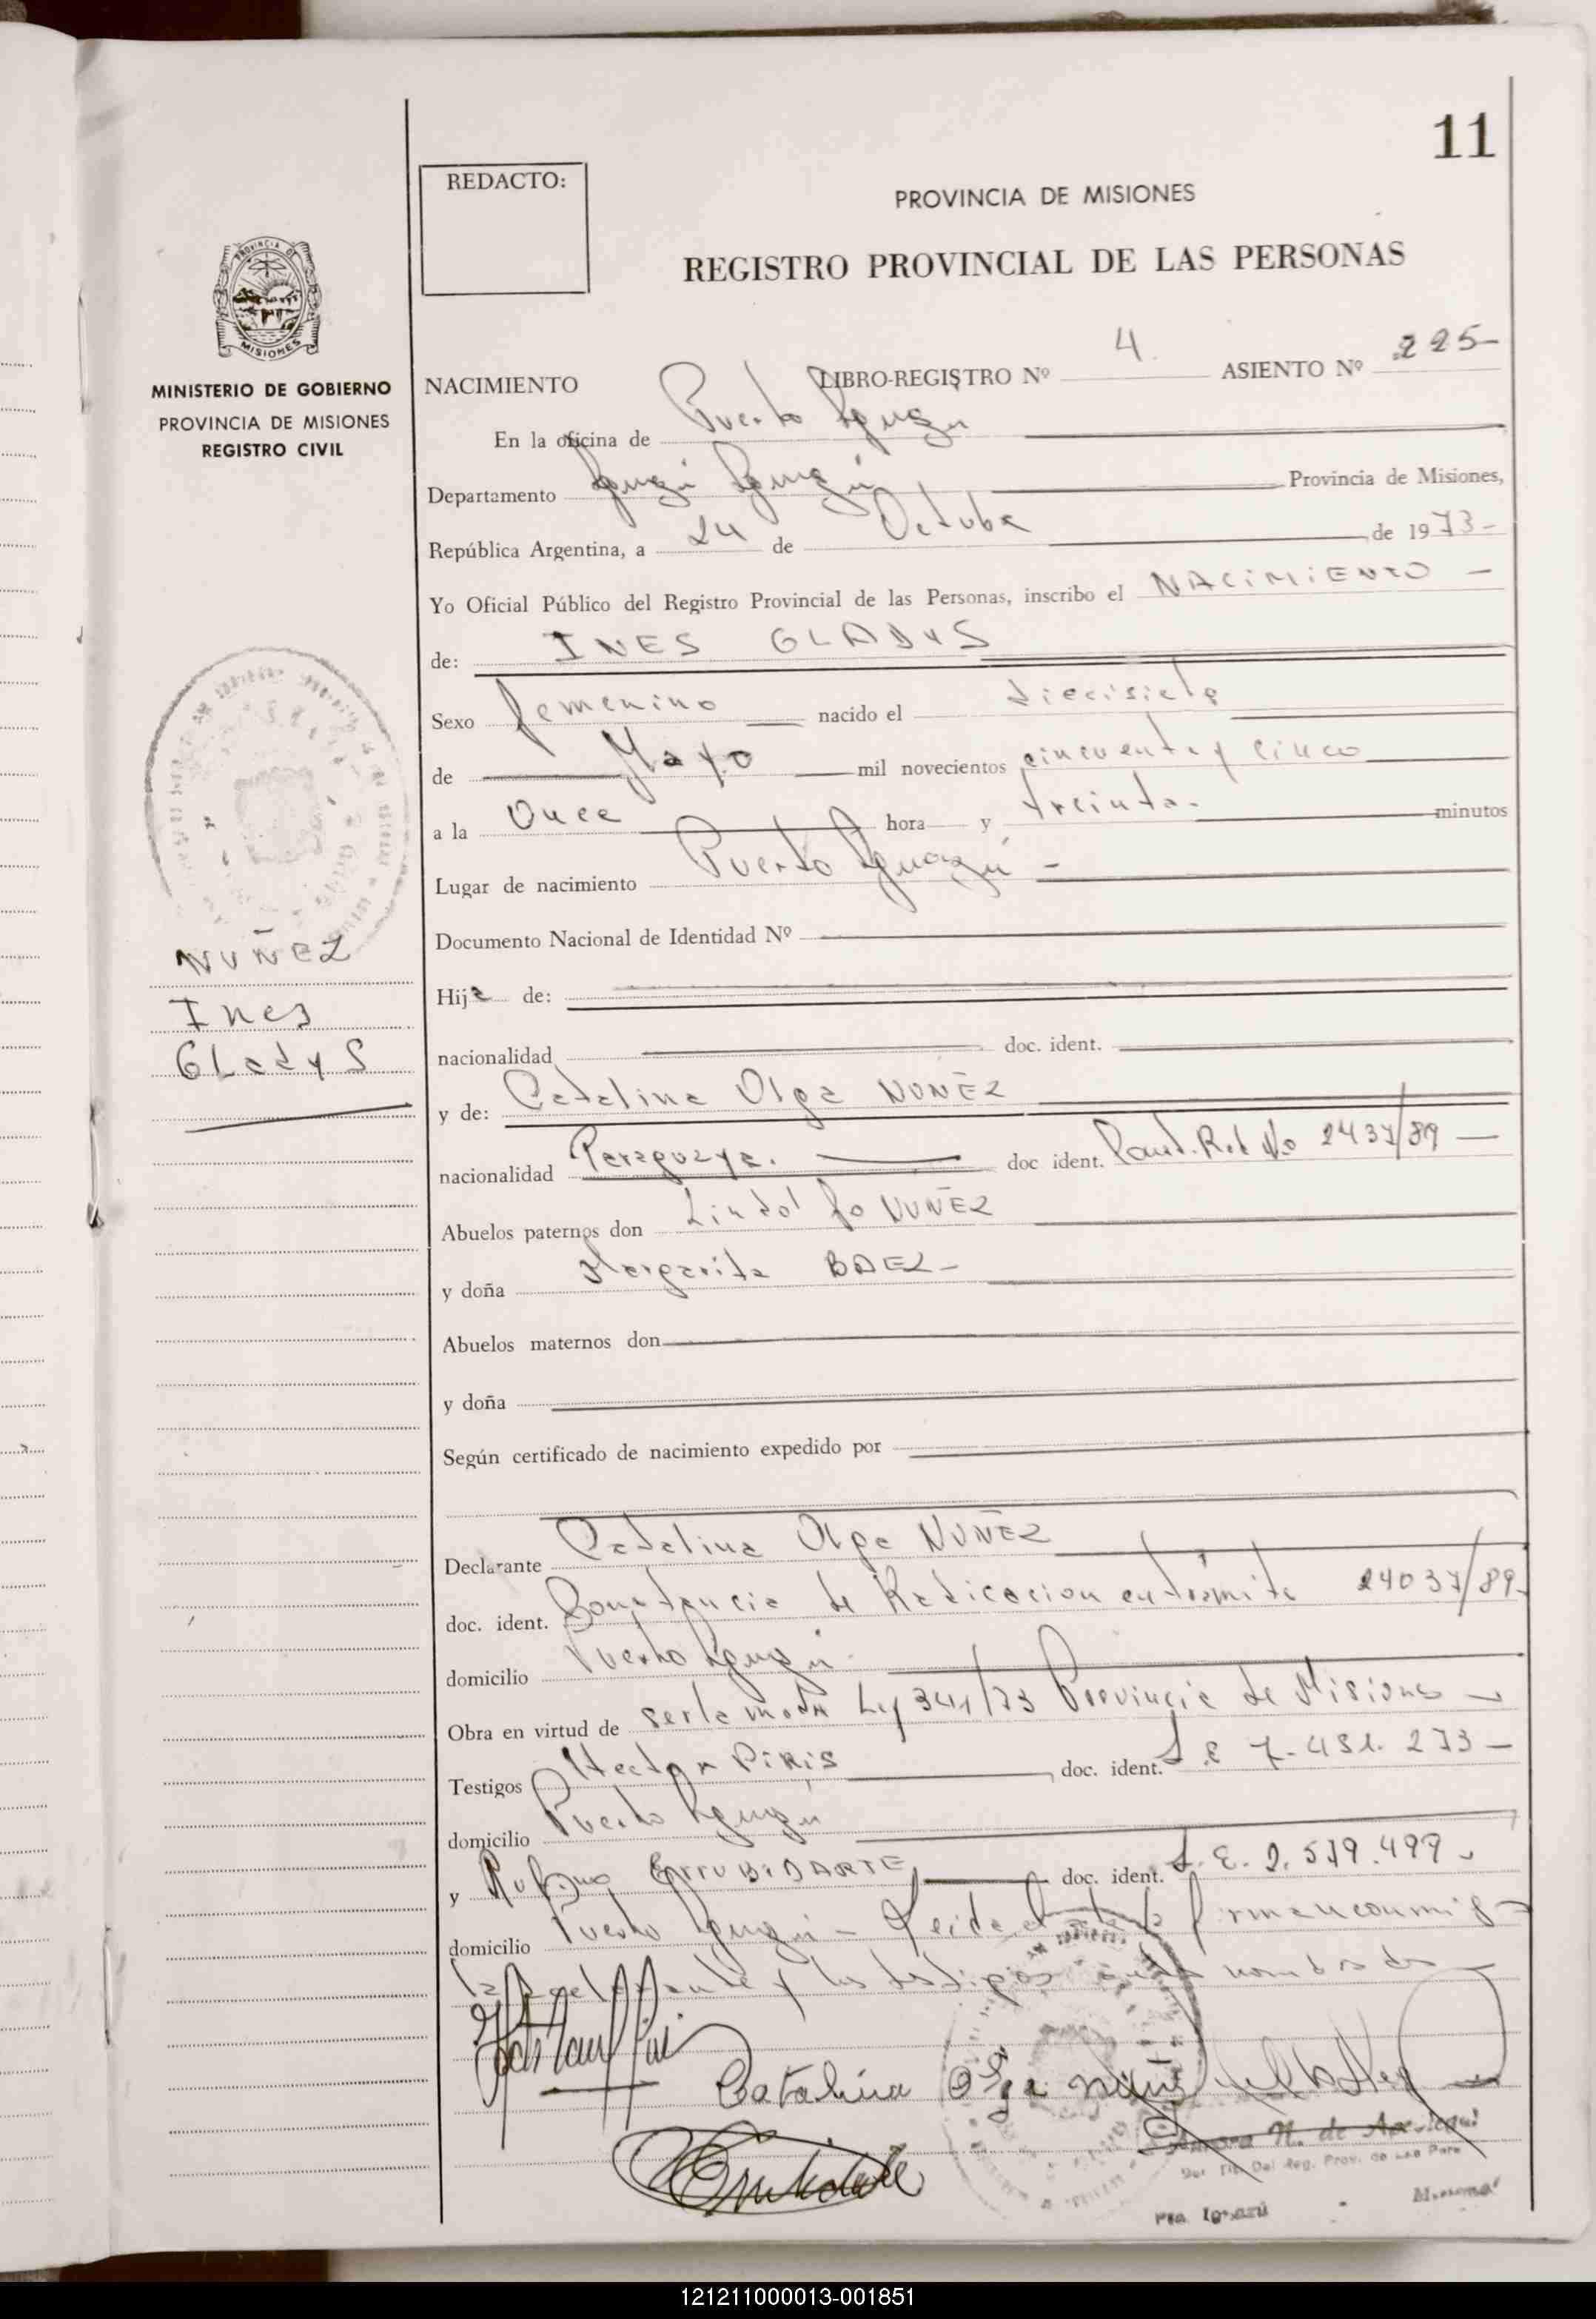 11
REDACTO:
PROVINCIA DE MISIONES
REGISTRO PROVINCIAL DE LAS PERSONAS
PROVINCIA D
MISIONES
MINISTERIO DE GOBIERNO
PROVINCIA DE MISIONES
REGISTRO CIVIL
NACIMIENTO LIBRO-REGISTRO Nº 4 ASIENTO Nº 225-
En la oficina de Puerto Iguazú
Departamento Iguazú Iguazú Provincia de Misiones,
República Argentina, a 24 de Octubre de 1973-
Yo Oficial Público del Registro Provincial de las Personas, inscribo el NACIMIENTO -
de: INES GLADYS
Sexo femenino nacido el diecisiete
de Mayo mil novecientos cincuenta y cinco
a la Once hora y treinta- minutos
Lugar de nacimiento Puerto Iguazú -
Documento Nacional de Identidad Nº
NUÑEZ
Ines
GLadyS
Hija de:
nacionalidad doc. ident.
y de: Catalina Olga NUÑEZ
nacionalidad Paraguaya. doc ident. Rad Nº 2437/89 -
Abuelos paternos don Lindolfo NUÑEZ
y doña Margarita BAEZ-
Abuelos maternos don
y doña
Según certificado de nacimiento expedido por
Declarante Catalina Olga NUÑEZ
doc. ident. Constancia de Radicacion en trámite 24037/89-
domicilio Puerto Iguazú-
Obra en virtud de ser la madre Ley 341/73 Provincia de Misiones -
Testigos Hector PIRIS doc. ident. L.E 7.481.273-
domicilio Puerto Iguazú
y Rufino doc. ident. L.E. 2.579.499-
domicilio Puerto Iguazú - Leida el acta la firman conmigo
la declarante y los testigos antes nombrados -
Catalina Olga Nuñez
Aurora N. de
Del Reg. Prov. de Las Pers
Pto. Iguazú - Misiones
121211000013-001851